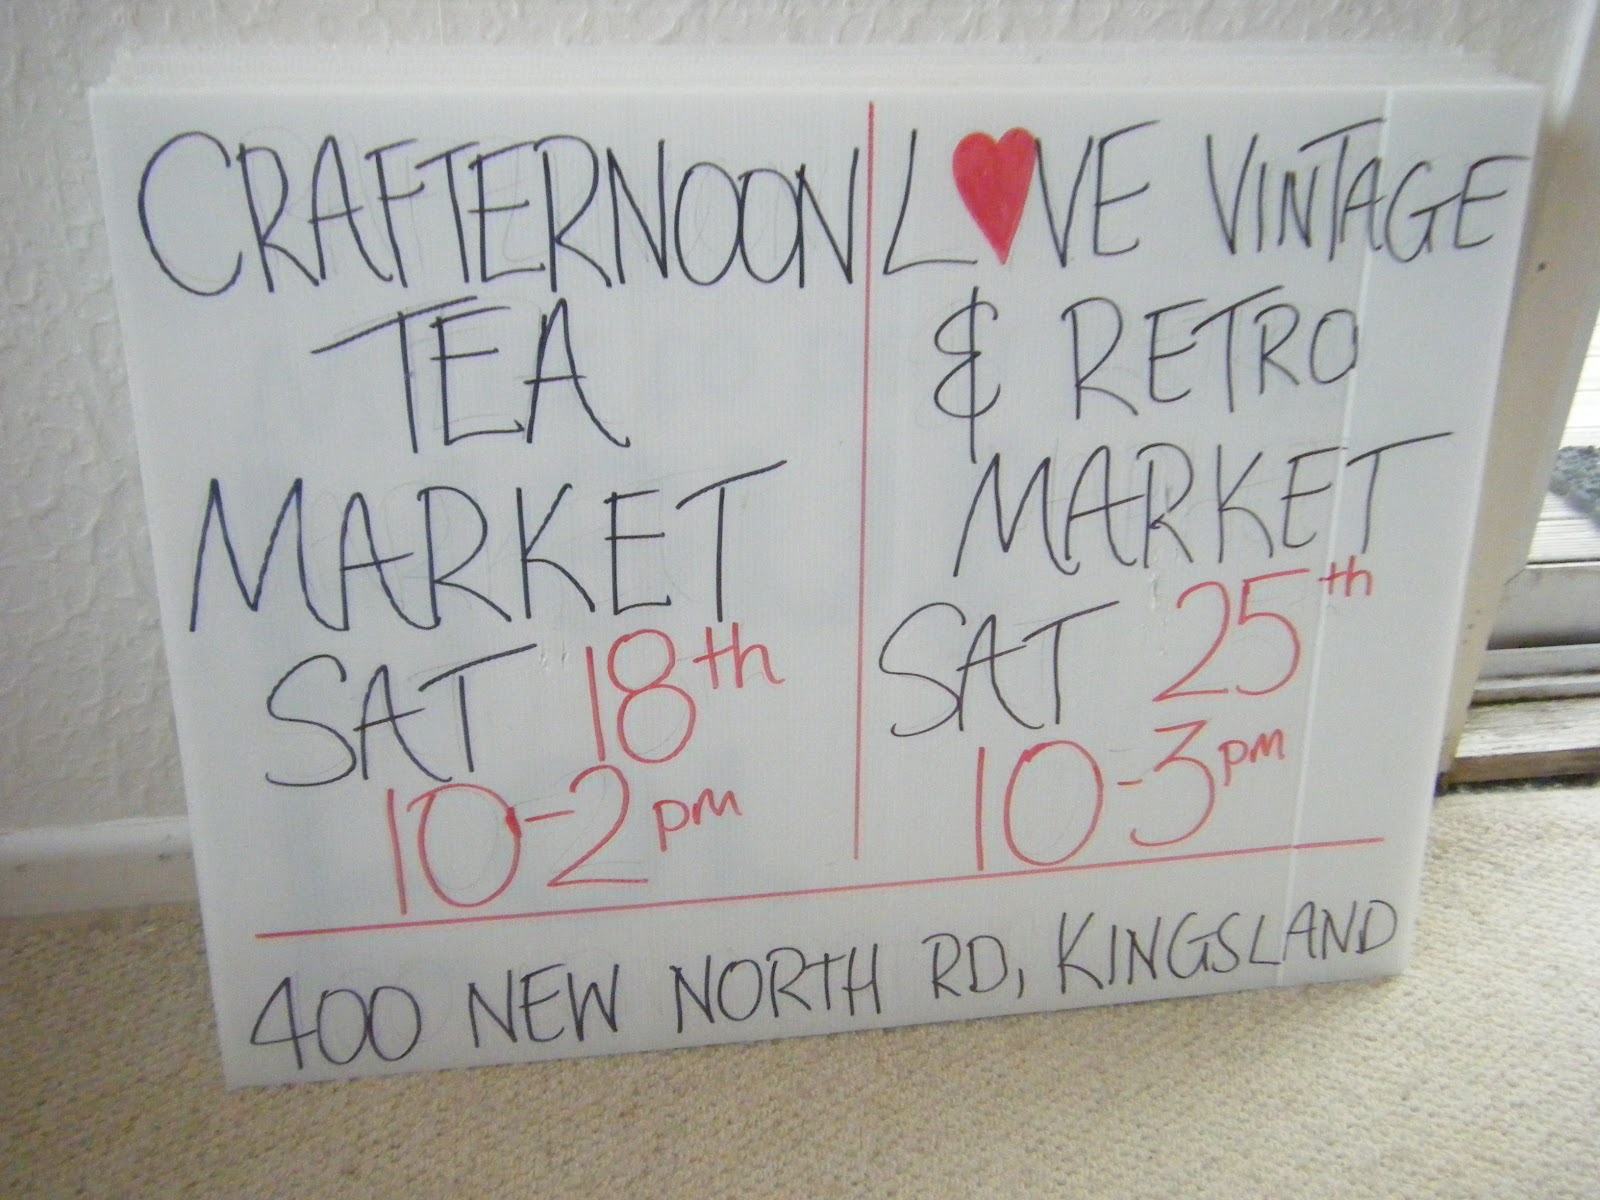 CRAFTERNOON
TEA
MARKET
SAT 18th
10-2pm
L♥VE VINTAGE
& RETRO
MARKET
SAT 25th
10-3pm
400 NEW NORTH RD, KINGSLAND